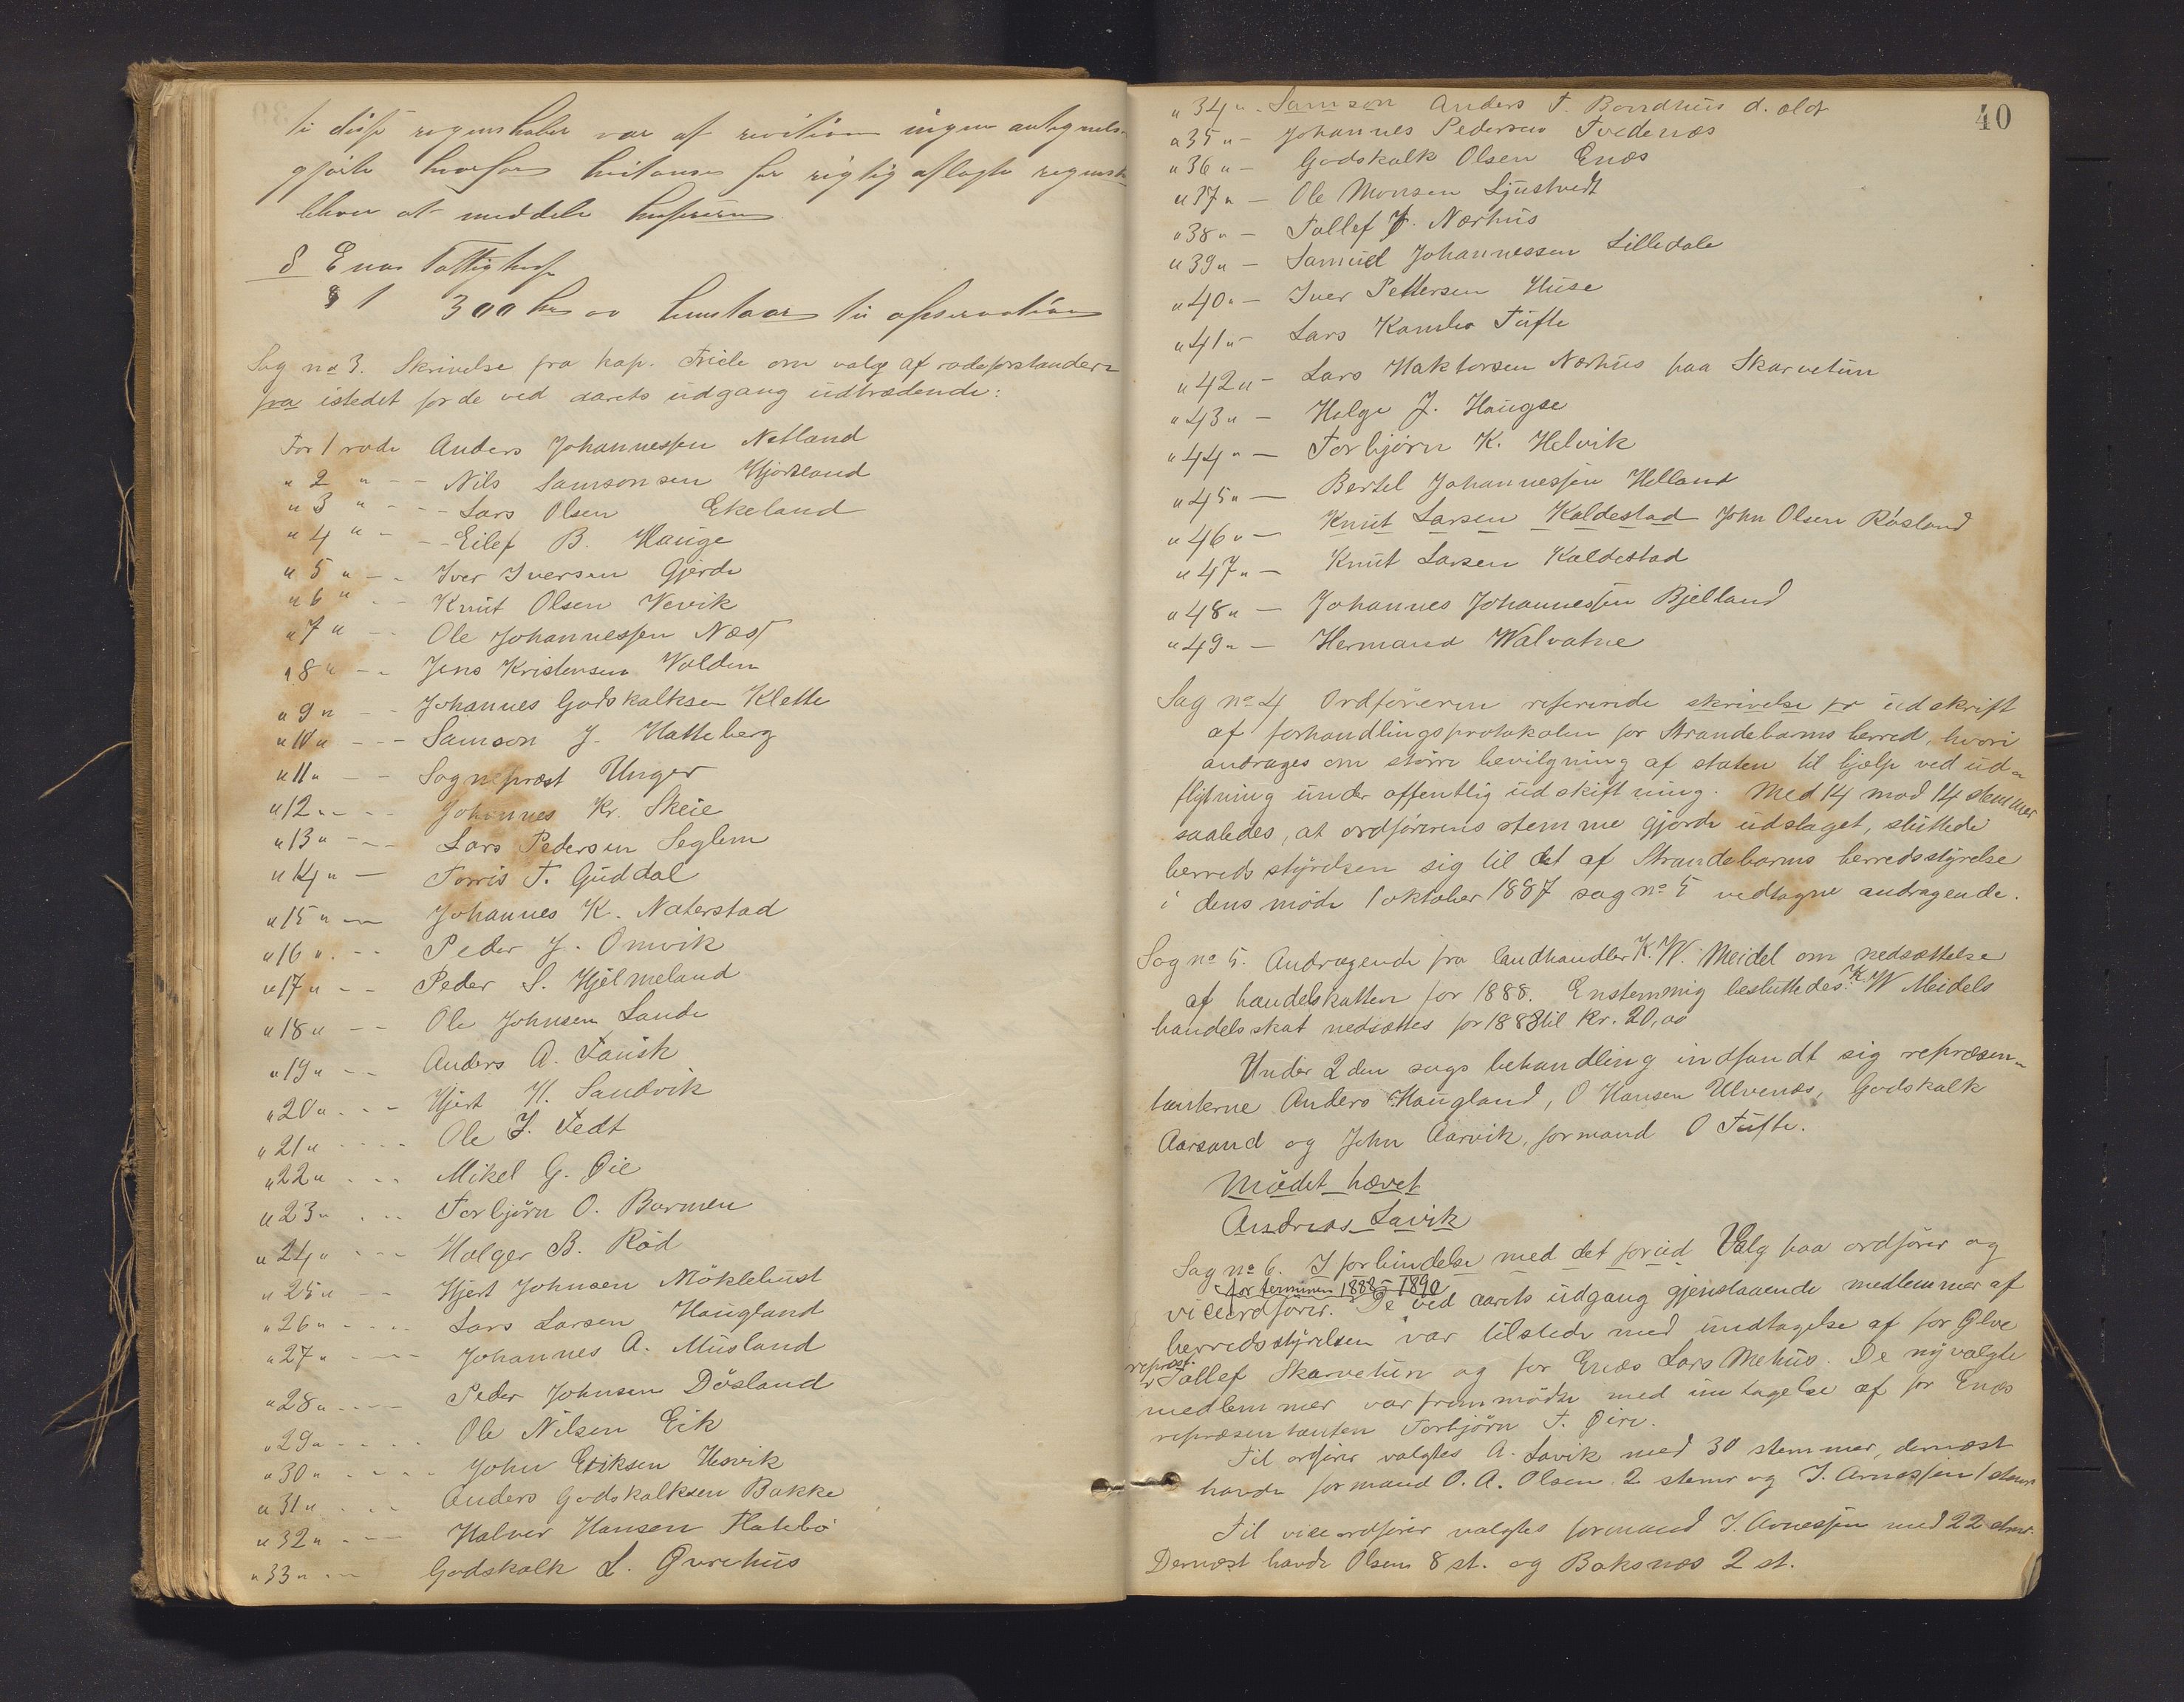 ti disse regnskaber var af revisionen ingen antegnelse
gjorte hvorfor kvitanse for rigtig aflagte regnsk.
blev at meddele kasserern
8 Enæs Fattigkasse
§ 1 300 kr
Sag no 3. Skrivelse fra kap. Friele om valg af rodeforstandere
fra istedet for de ved aarets udgang udtrædende:
For 1 rode Anders Johannessen Netland
" 2 " - - Nils Samsonsen Hjortland
" 3 " - - - Lars Olsen Ekeland
" 4 " - - Eilef B. Hauge
" 5 " - - Iver Iversen Gjerde
" 6 " - - Knut Olsen Vevik
" 7 " - - Ole Johannessen Næss
" 8 " - - Jens Kristensen Volden
" 9 " - - Johannes Godskalksen Klette
" 10 " - - - Samson J. Hatteberg
" 11 " - - Sogneprest Unger
" 12 " - - Johannes Kr. Skeie
" 13 " - - - Lars Pedersen Seglem
" 14 " - Torris T. Guddal
" 15 " - - Johannes K. Naterstad
" 16 " - - Peder J. Omvik
" 17 " - - Peder S. Hjelmeland
" 18 " - - Ole Johnsen Sande
" 19 " - - Anders A. Tausk
" 20 " - - - Hjert H. Sandvik
" 21 " - - - - Ole J. Tedt
" 22 " - - - Mikel G. Øie
" 23 " - - - Torbjørn O. Barmen
" 24 " - - - Holger B. Rød
" 25 " - - Hjert Johnsen Møklebust
" 26 " - - - - Lars Larsen Haugland
" 27 " - - - Johannes A. Musland
" 28 " - - - - Peder Johnsen Døsland
" 29 " - - - - Ole Nilsen Eik
" 30 " - - - - John Eriksen Hesvik
" 31 " - - - Anders Godskalksen Bakke
" 32 " - - - Halvor Hansen Flatebø
" 33 " - - Godskalk L. Øvrehus
40
" 34 " - Samson Anders T. Bondhus d. eldr
" 35 " - Johannes Pedersen Tvedenæs
" 36 " - Godskalk Olsen Enæs
" 37 " - Ole Monsen Ljustvedt
" 38 " - Tollef J. Nærhus
" 39 " - Samuel Johannessen Lilledale
" 40 " - Iver Pettersen Huse
" 41 " - Lars Kambo Tufte
" 42 " - Lars Haktorsen Nærhus paa Skarvetun
" 43 " - Helge J. Haugse
" 44 " - Torbjørn K. Helvik
" 45 " - Bertel Johannessen Helland
" 46 " - Knut Larsen Kaldestad John Olsen Røsland
" 47 " - Knut Larsen Kaldestad
" 48 " - Johannes Johannessen Bjelland
" 49 " - Hermand Walvatne
Sag no 4 Ordføreren refererede skrivelse fr udskrift
af forhandlingsprotokolen for Strandebarms herred, hvori
andrages om større bevilgning af staten til hjælp ved ud-
flytning under offentlig udskiftning. Med 14 mod 14 stemmer
saaledes, at ordførerens stemme gjorde udslaget, sluttede
herredsstyrelsen sig til det af Strandebarms herredsstyrelse
i dens møde 1 oktober 1887 sag no 5 vedtagne andragende.
Sag no 5. Andragende fra landhandler K. W. Meidel om nedsættelse
af handelskatten for 1888. Enstemmig besluttedes: K W Meidels
handelsskat nedsættes for 1888 til kr. 20,00
Under 2den sags behandling indfandt sig repræsen-
tanterne Anders Haugland, O Hansen Ulvenæs, Godskalk
Aarsand og John Aarvik, formand O Tufte.
Mødet hævet
Andreas Lavik
Sag no 6. I forbindelse med det forud Valg paa ordfører og
for terminen 1888-1890
viceordfører. De ved aarets udgang gjenstaaende medlemmer af
herredsstyrelsen var tilstede med undtagelse af for Ølve
repræs. Tollef Skarvetun og for Enæs Lars Mehus. De nyvalgte
medlemmer var fremmødte med undtagelse af for Enæs
repræsentanten Torbjørn T. Øire.
Til ordfører valgtes A. Lavik med 30 stemmer, dernæst
havde formand O. A. Olsen 2 stemr og J. Arnessen 1 stemr
Til viceordfører valgtes formand J. Arnessen med 22 stmr.
Dernæst havde Olsen 8 st. og Baksnæs 2 st.